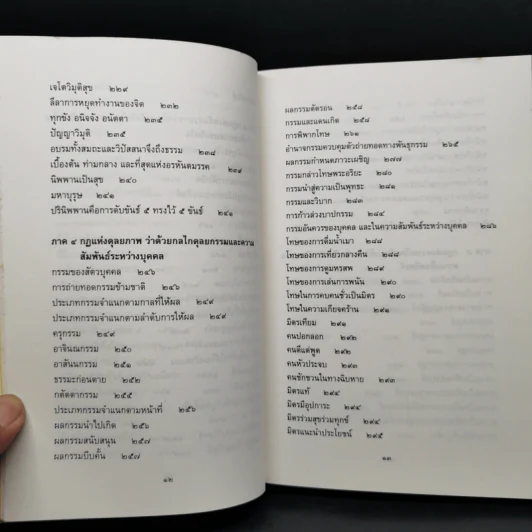 เจโตวิมุติสุข ๒๒๙
ลีลาการหยุดทำงานของจิต ๒๓๒
ทุกขัง อนิจจัง อนัตตา ๒๓๕
ปัญญาวิมุติ ๒๓๕
อบรมทั้งสมถะและวิปัสสนาจึงถึงธรรม ๒๓๘
เบื้องต้น ท่ามกลาง และที่สุดแห่งอรหันตมรรค ๒๓๙
นิพพานเป็นสุข ๒๔๐
มหาบุรุษ ๒๔๑
ปรินิพพานคือการดับขันธ์ ๕ ทรงไว้ ๕ ขันธ์ ๒๔๑
ภาค ๔ กฎแห่งดุลยภาพ ว่าด้วยกลไกดุลยกรรมและความ
สัมพันธ์ระหว่างบุคคล
กรรมของสัตวบุคคล ๒๔๖
การถ่ายทอดกรรมข้ามชาติ ๒๔๖
ประเภทกรรมจำแนกตามกาลที่ให้ผล ๒๔๙
ประเภทกรรมจำแนกตามลำดับการให้ผล ๒๔๙
ครุกรรม ๒๔๙
อาจิณณกรรม ๒๕๐
อาสันนกรรม ๒๕๑
ธรรมะก่อนตาย ๒๕๒
กตัตตากรรม ๒๕๕
ประเภทกรรมจำแนกตามหน้าที่ ๒๕๖
ผลกรรมนำไปเกิด ๒๕๖
ผลกรรมสนับสนุน ๒๕๗
ผลกรรมบีบคั้น ๒๕๗
๑๒
ผลกรรมตัดรอน ๒๕๘
กรรมและแดนเกิด ๒๕๘
การพิพากโทษ ๒๖๑
อำนาจกรรมควบคุมตัวถ่ายทอดทางพันธุกรรม ๒๖๕
ผลกรรมกำหนดภาวะเผชิญ ๒๗๗
กรรมกล่าวโทษพระอริยะ ๒๘๑
กรรมนำสู่ความเป็นพุทธะ ๒๘๑
กรรมและวิบาก ๒๘๓
การก้าวล่วงบาปกรรม ๒๘๔
กรรมอันควรของบุคคล และในความสัมพันธ์ระหว่างบุคคล ๒๘๖
โทษของการดื่มน้ำเมา ๒๘๗
โทษของการเที่ยวกลางคืน ๒๘๘
โทษของการดูมหรสพ ๒๘๙
โทษของการเล่นการพนัน ๒๙๐
โทษในการคบคนชั่วเป็นมิตร ๒๙๐
โทษในความเกียจคร้าน ๒๙๑
มิตรเทียม ๒๙๑
คนปอกลอก ๒๙๒
คนดีแต่พูด ๒๙๒
คนหัวประจบ ๒๙๓
คนชักชวนในทางฉิบหาย ๒๙๓
มิตรแท้ ๒๙๔
มิตรมีอุปการะ ๒๙๔
มิตรร่วมสุขร่วมทุกข์ ๒๙๔
มิตรแนะนำประโยชน์ ๒๙๕
๑๓